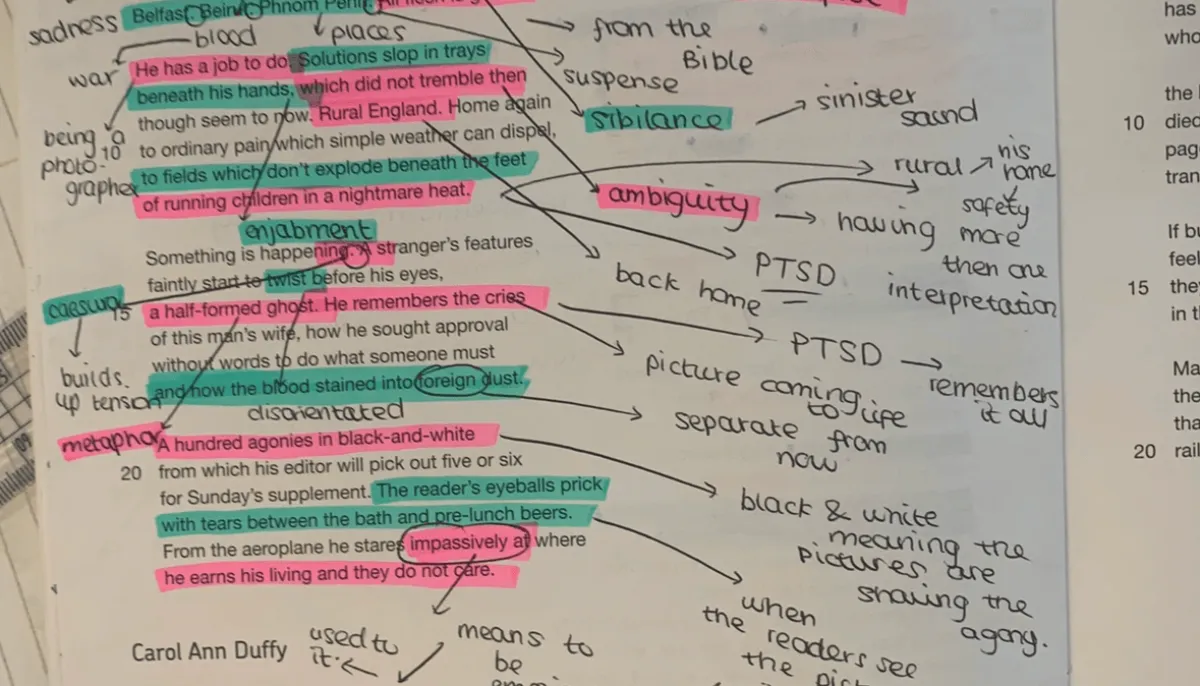 sadness
Belfast. Beirut. Phnom Penh.
blood
places
from the
Bible
war
He has a job to do. Solutions slop in trays
beneath his hands, which did not tremble then
though seem to now. Rural England. Home again
10 to ordinary pain which simple weather can dispel,
to fields which don't explode beneath the feet
of running children in a nightmare heat.
being a
photo-
grapher
suspense
sibilance
sinister
sound
rural
his
home
safety
ambiguity
having more
then one
interpretation
PTSD
back home
enjabment
Something is happening. A stranger's features
faintly start to twist before his eyes,
15 a half-formed ghost. He remembers the cries
of this man's wife, how he sought approval
without words to do what someone must
and how the blood stained into foreign dust.
caesura
builds
up tension
PTSD
remembers
it all
picture coming
to life
disorientated
separate from
now
metaphor
A hundred agonies in black-and-white
20 from which his editor will pick out five or six
for Sunday's supplement. The reader's eyeballs prick
with tears between the bath and pre-lunch beers.
From the aeroplane he stares impassively at where
he earns his living and they do not care.
black & white
meaning the
pictures are
sharing the
agony.
when
the readers see
the
Carol Ann Duffy
used to
it.
means to
be
has
who
the
10 died
pag
tran
If bu
feel
15 they
in t
Ma
the
tha
20 rail